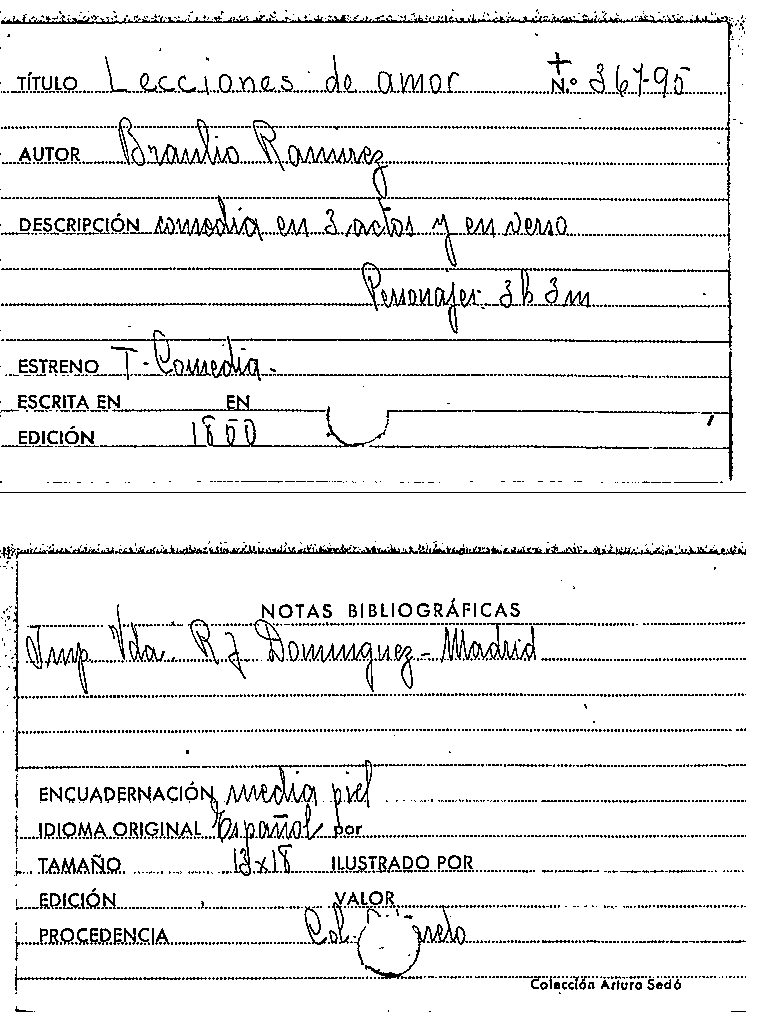 TÍTULO Lecciones de amor N.º 367-95
AUTOR Braulio Ramirez
DESCRIPCIÓN comedia en 3 actos y en verso
Personajes. 3h 3m
ESTRENO T. Comedia.
ESCRITA EN EN
EDICIÓN 1850
NOTAS BIBLIOGRÁFICAS
Imp Vda. R. J Dominguez - Madrid
ENCUADERNACIÓN media piel
IDIOMA ORIGINAL Español por
TAMAÑO 13x18 ILUSTRADO POR
EDICIÓN VALOR
PROCEDENCIA Col.
Colección Arturo Sedó